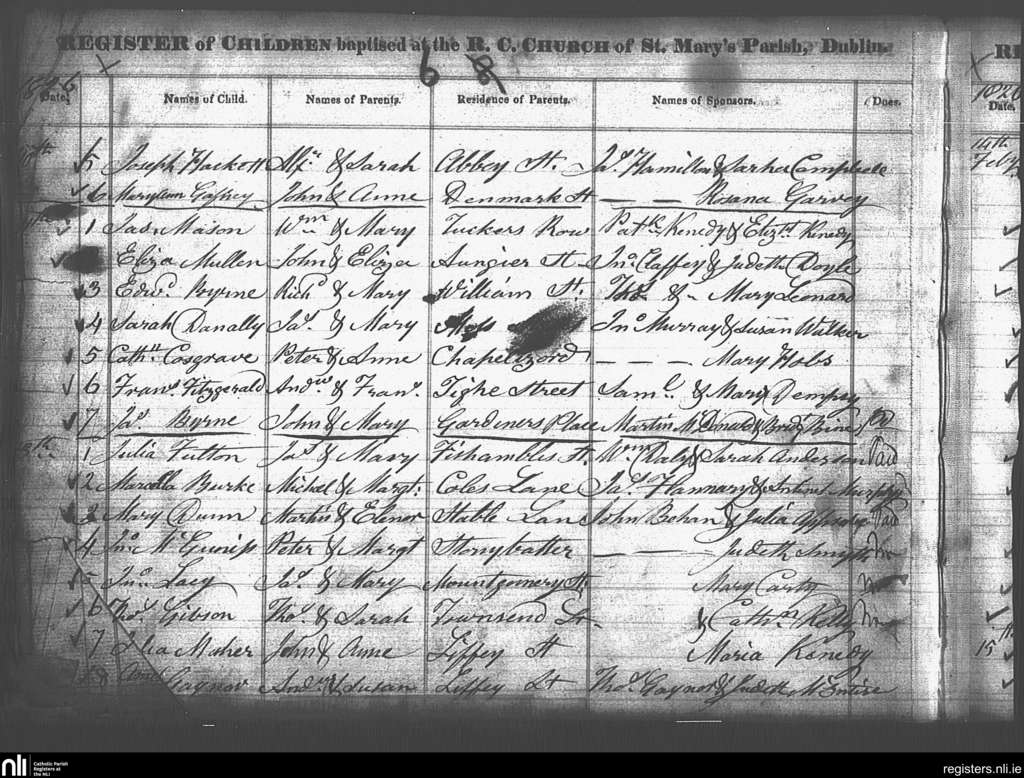 REGISTER of CHILDREN baptised at the R. C. CHURCH of St. Mary's Parish, Dublin.
6
1826
Date. Names of Child. Names of Parents. Residence of Parents. Names of Sponsors. Dues.
5 Joseph Hackett Alfr & Sarah Abbey St. Jas Hamilton & Sarha Campbele
6 Maryann Gaffney John & Anne Denmark St — — Rosana Garvey
1 Jas Mason Wm & Mary Tuckers Row Patk Kenedy & Elizth Kenedy
Eliza Mullen John & Eliza Aungier St Jno Claffey & Judeth Doyle
3 Edwd Byrne Richd & Mary William St. Thos & Mary Leonard
4 Sarah Danally Jas & Mary Moss Jno Murray & Susan Walker
5 Cathn Cosgrave Peter & Anne Chapelizord — — — Mary Hobs
6 Frans Fitzgerald Andw & Frans Tighe Street Saml & Mary Dempsey
7 Jas Byrne John & Mary Gardeners Place Martin McDonald & Brid Bine Pd
1 Julia Fulton Jas & Mary Fishambles St. Wm Daly & Sarah Anderson Paid
2 Marcella Burke Michael & Margt Coles Lane Jas Flannary & Murphy
3 Mary Dunn Martin & Elenor Stable Lane John Bohan & Julia Paid
4 Jno McGuniss Peter & Margt Stonybatter — — — Judeth Smyth
5 Jno Lacy Jas & Mary Mountgomery St Mary Carty
6 Thos Gibson Thos & Sarah Townsend St & Cathn Kelly
7 Julia Maher John & Anne Liffey St Maria Kenedy
8 Gaynor Andw & Susan Liffey St Thos Gaynor & Judeth McEntire
RE
1826
Date.
14th
Feby
15
nli Catholic Parish Registers at the NLI
registers.nli.ie